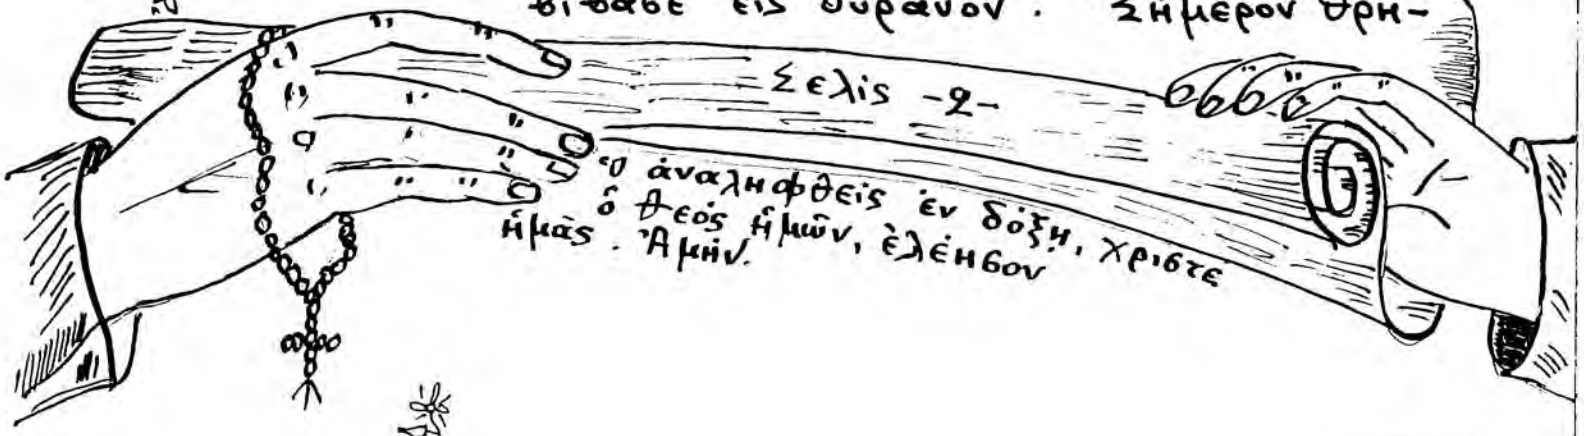 βίβασε εἰς οὐρανόν. Σήμερον θρη-
Σελίς -2-
Ὁ ἀναληφθείς ἐν δόξῃ, Χριστέ
ὁ θεός ἡμῶν, ἐλέησον
ἡμᾶς. Ἀμήν.